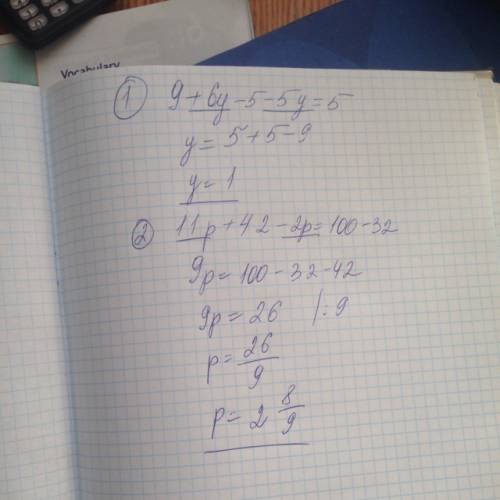 Vocabulary
① 9 + 6y - 5 - 5y = 5
y = 5 + 5 - 9
y = 1
② 11p + 42 - 2p = 100 - 32
9p = 100 - 32 - 42
9p = 26 |: 9
p = 26/9
p = 2 8/9